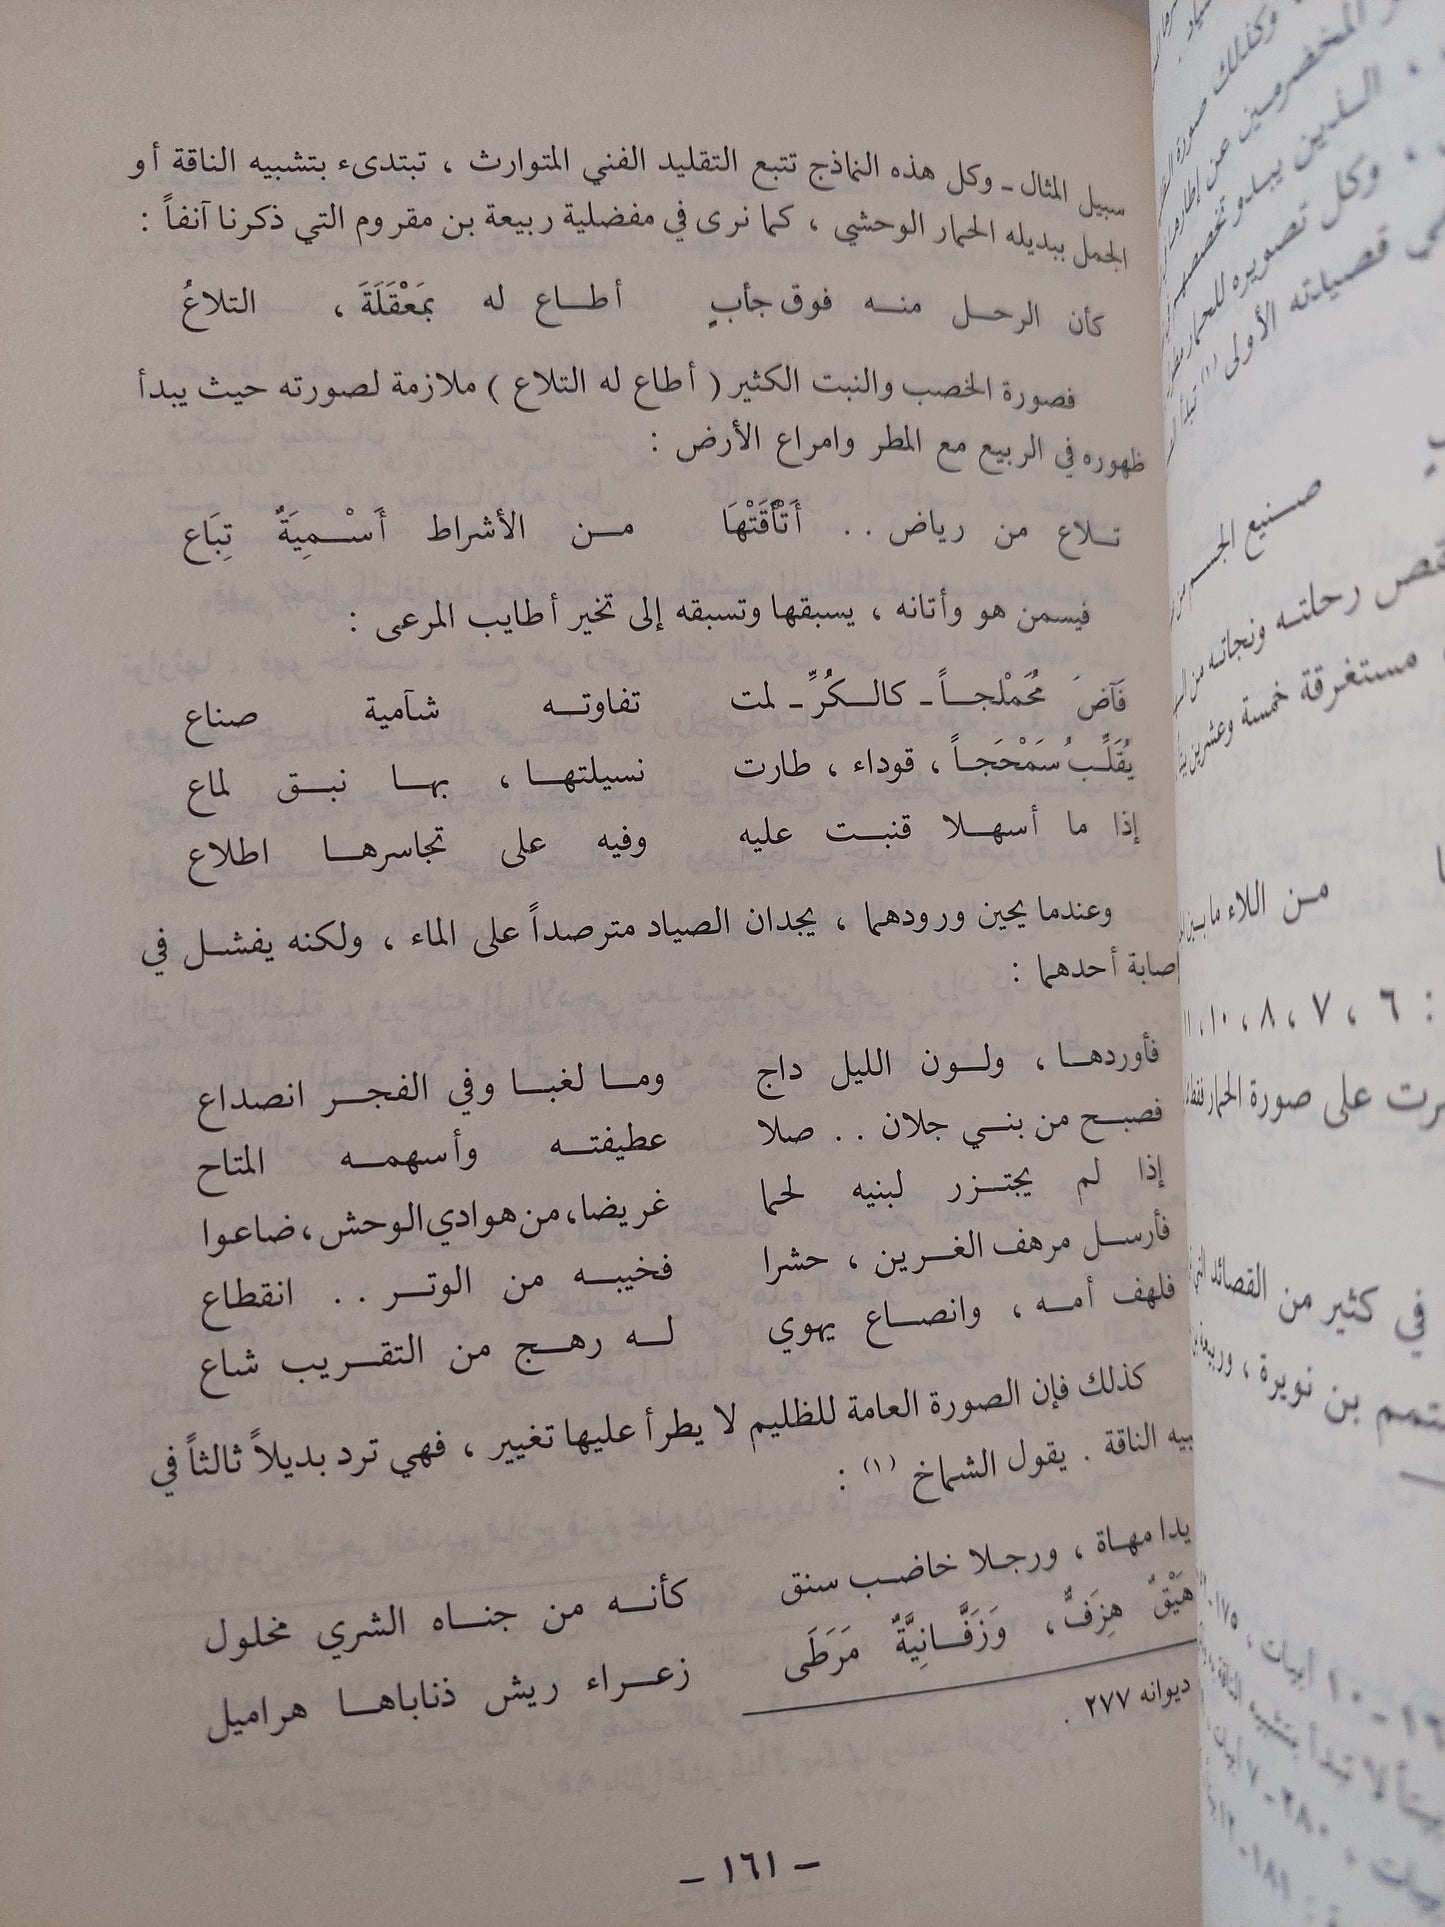 سبيل المثال ـ وكل هذه النماذج تتبع التقليد الفني المتوارث ، تبتدىء بتشبيه الناقة أو
الجمل ببديله الحمار الوحشي ، كما نرى في مفضلية ربيعة بن مقروم التي ذكرنا آنفاً :
كأن الرحل منه فوق جأبٍ أطاع له بمَعْقَلَةَ ، التلاعُ
فصورة الخصب والنبت الكثير ( أطاع له التلاع ) ملازمة لصورته حيث يبدأ
ظهوره في الربيع مع المطر وامراع الأرض :
تلاع من رياض . . أَتْأَقَتْهَا من الأشراط أَسْمِيَةٌ تِبَاع
فيسمن هو وأتانه ، يسبقها وتسبقه إلى تخير أطايب المرعى :
فَآضَ مُحَمْلجاً ـ كالكُرِّ ـ لمت تفاوته شآمية صناع
يُقَلِّبُ سَمْحَجاً ، قوداء ، طارت نسيلتها ، بها نبق لماع
إذا ما أسهلا قنبت عليه وفيه على تجاسرها اطلاع
وعندما يحين ورودهما ، يجدان الصياد مترصداً على الماء ، ولكنه يفشل في
إصابة أحدهما :
فأوردها ، ولون الليل داج وما لغبا وفي الفجر انصداع
فصبح من بني جلان . . صلا عطيفته وأسهمه المتاح
إذا لم يجتزر لبنيه لحما غريضا ، من هوادي الوحش ، ضاعوا
فأرسل مرهف الغرين ، حشرا فخيبه من الوتر . . انقطاع
فلهف أمه ، وانصاع يهوي له رهج من التقريب شاع
كذلك فإن الصورة العامة للظليم لا يطرأ عليها تغيير ، فهي ترد بديلاً ثالثاً في
بيه الناقة . يقول الشماخ (١) :
يدا مهاة ، ورجلا خاضب سنق كأنه من جناه الشري مخلول
هَيْقٌ هِزَفٌّ ، وَزَفَّانِيَّةٌ مَرَطَى زعراء ريش ذناباها هراميل
ديوانه ٢٧٧ .
ـ ١٦١ ـ
وكذلك صورة
المخضرمين عن إطارها
، الذين يبدو تخصصهم
، وكل تصويره للحمار
قصيدته الأولى (١) تبدأ
صنيع الجسم من
رحلته ونجاته من
مستغرقة خمسة وعشرين
من اللاء ما بين
: ٦ ، ٧ ، ٨ ، ١٠ ،
على صورة الحمار
في كثير من القصائد
متمم بن نويرة ،